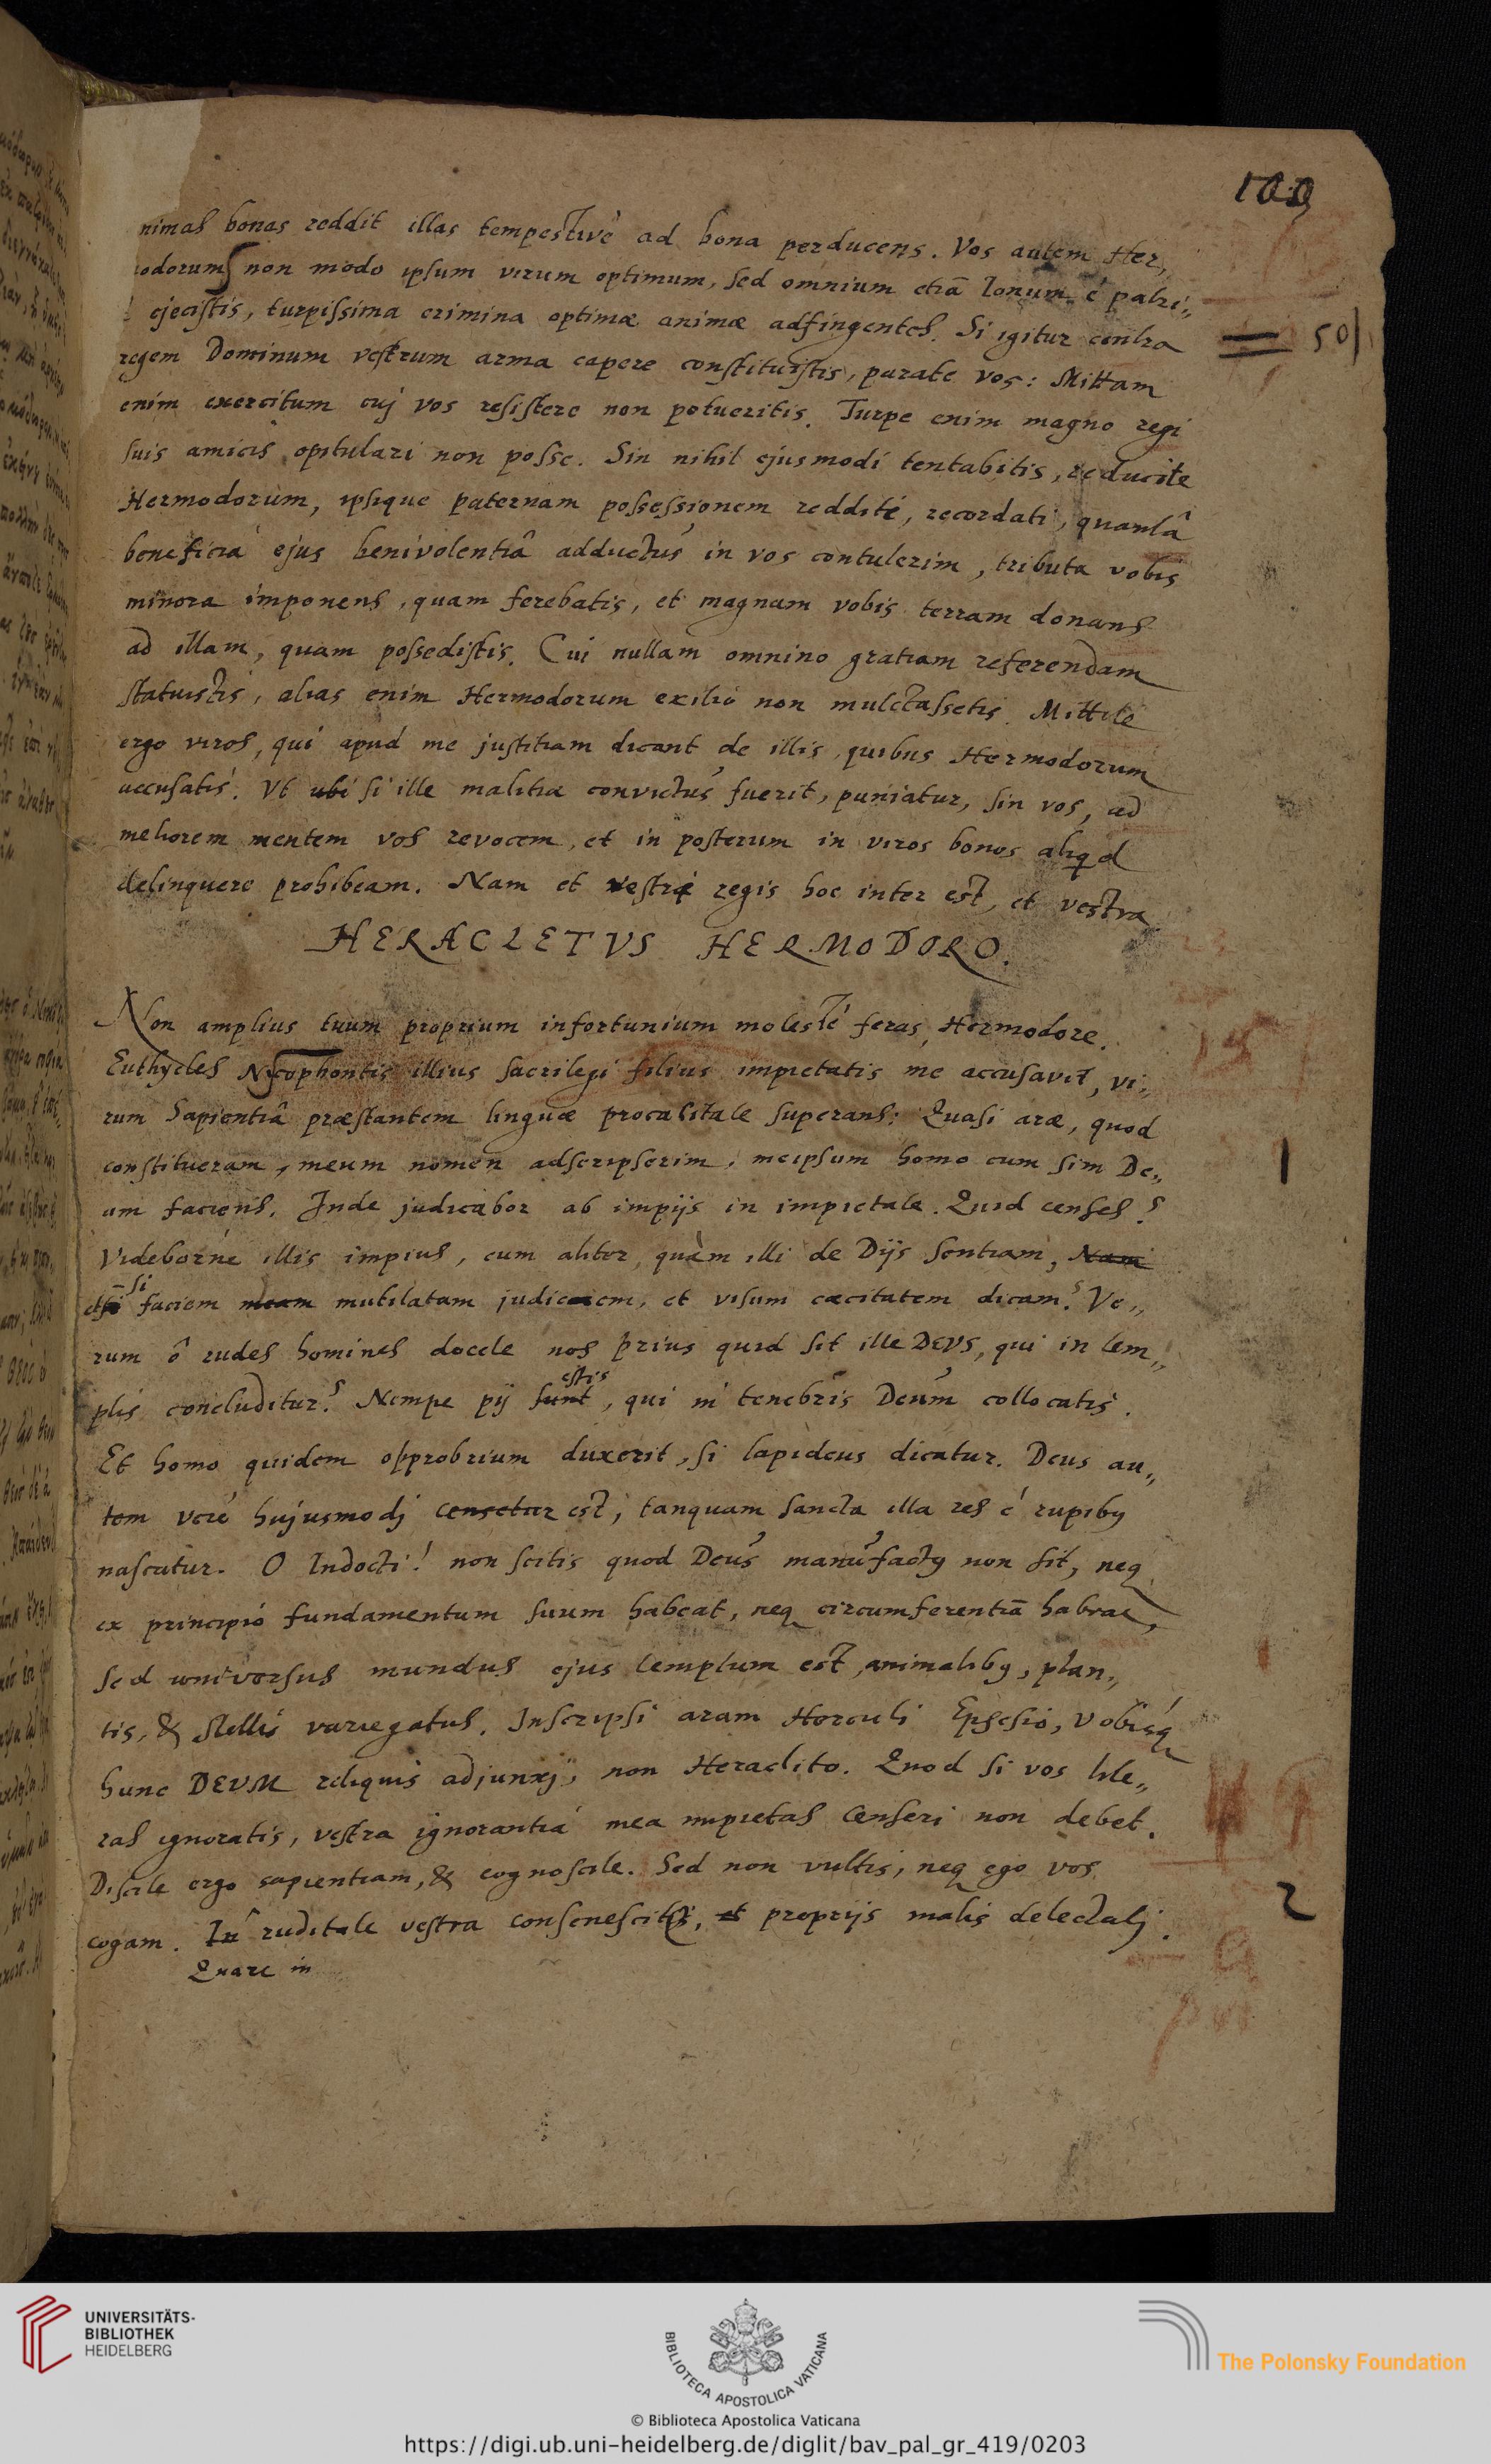 100
nimas bonas reddit illas tempestivè ad bona perducens. Vos autem Her,,
modorum non modo ipsum virum optimum, sed omnium etiā Ionum è patri,,
ejecistis, turpissima crimina optimæ animæ adfingentes. Si igitur contra
regem Dominum vestrum arma capere constituistis, parate vos: Mittam
enim exercitum cuj vos resistere non potueritis. Turpe enim magno regi
suis amicis opitulari non posse. Sin nihil ejusmodi tentabitis, reducite
Hermodorum, ipsique paternam possessionem reddite, recordati, quantâ
beneficia ejus benivolentiâ adductus in vos contulerim, tributa vobis
minora imponens, quam ferebatis, et magnam vobis terram donans
ad illam, quam possedistis. Cui nullam omnino gratiam referendam
statuistis, alias enim Hermodorum exilio non mulctassetis. Mittite
ergo viros, qui apud me justitiam dicant de illis, quibus Hermodorum
accusatis. Vt ubi si ille malitiæ convictus fuerit, puniatur, sin vos, ad
meliorem mentem vos revocem, et in posterum in viros bonos aliqd
delinquere prohibeam. Nam et vestri regis hoc inter est, et vestra
HERACLETVS HERMODORO.
Non amplius tuum proprium infortunium molestè feras, Hermodore.
Euthycles Nycophontis illius sacrilegi filius impietatis me accusavit, vi,,
rum Sapientiâ præstantem linguæ procacitate superans: Quasi aræ, quod
constitueram, meum nomen adscripserim, meipsum homo cum sim De,,
um faciens. Inde judicabor ab impijs in impietate. Quid censes?
Videborne illis impius, cum aliter, quàm illi de Dijs sentiam, Nam
si
faciem meam mutilatam judicem, et visum cæcitatem dicam? Ve,,
rum ô rudes homines docete nos prius quid sit ille DEVS, qui in tem,,
estis
plis concluditur? Nempe pij sunt, qui in tenebris Deum collocatis.
Et homo quidem opprobrium duxerit, si lapideus dicatur. Deus au,,
tem verè hujusmodj censetur est, tanquam sancta illa res è rupibꝰ
nascatur. O Indocti! non scitis quod Deus manufactꝰ non sit, neq
ex principio fundamentum suum habeat, neq circumferentiā habeat,
sed universus mundus ejus templum est, animalibꝰ, plan,,
tis, & stellis variegatus. Inscripsi aram Herculi Ephesio, vobisq
hunc DEVM reliquis adjunxj, non Heraclito. Quod si vos lite,,
ras ignoratis, vestra ignorantia mea impietas censeri non debet.
Discite ergo sapientiam, & cognoscite. Sed non vultis, neq ego vos
cogam. In ruditate vestra consenescite, et proprijs malis delectatj.
Quare in
501
1
2
UNIVERSITÄTS-
BIBLIOTHEK
HEIDELBERG
BIBLIOTECA APOSTOLICA VATICANA
The Polonsky Foundation
© Biblioteca Apostolica Vaticana
https://digi.ub.uni-heidelberg.de/diglit/bav_pal_gr_419/0203